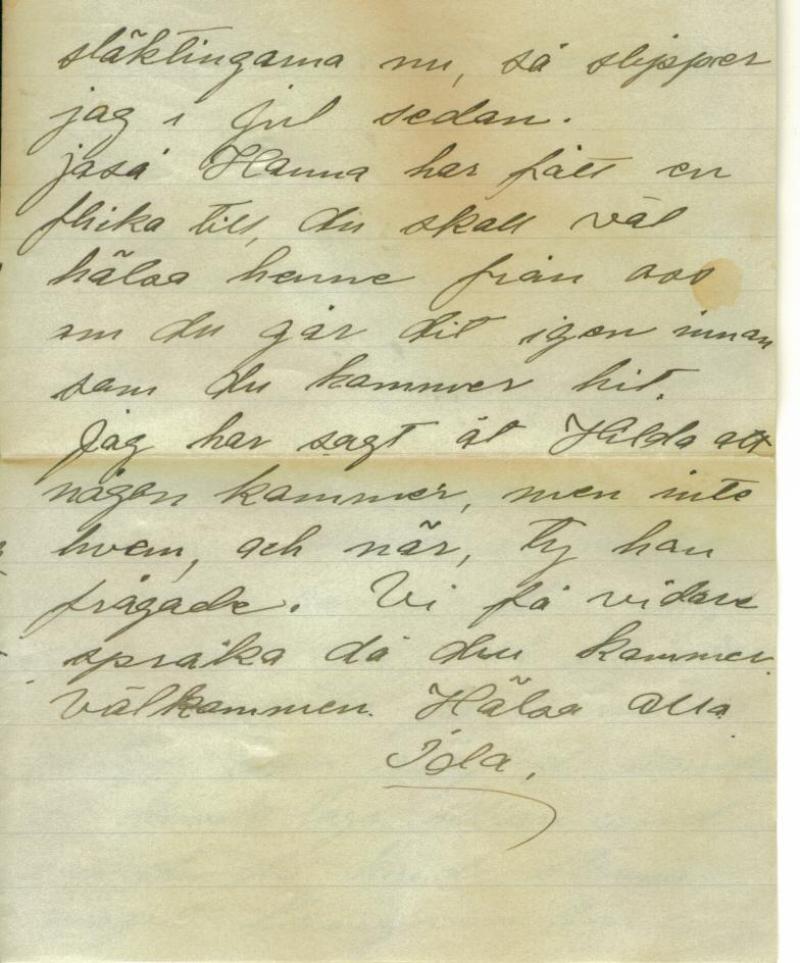 släktingarna nu, så slipper
jag i jul sedan.
jaså Hanna har fått en
flicka till, du skall väl
hälsa henne från oss
om du går dit igen innan
som du kommer hit.
Jag har sagt åt Hilda att
någon kommer, men inte
hvem, och när, ty han
frågade. Vi få vidare
språka då du kommer.
Välkommen. Hälsa alla